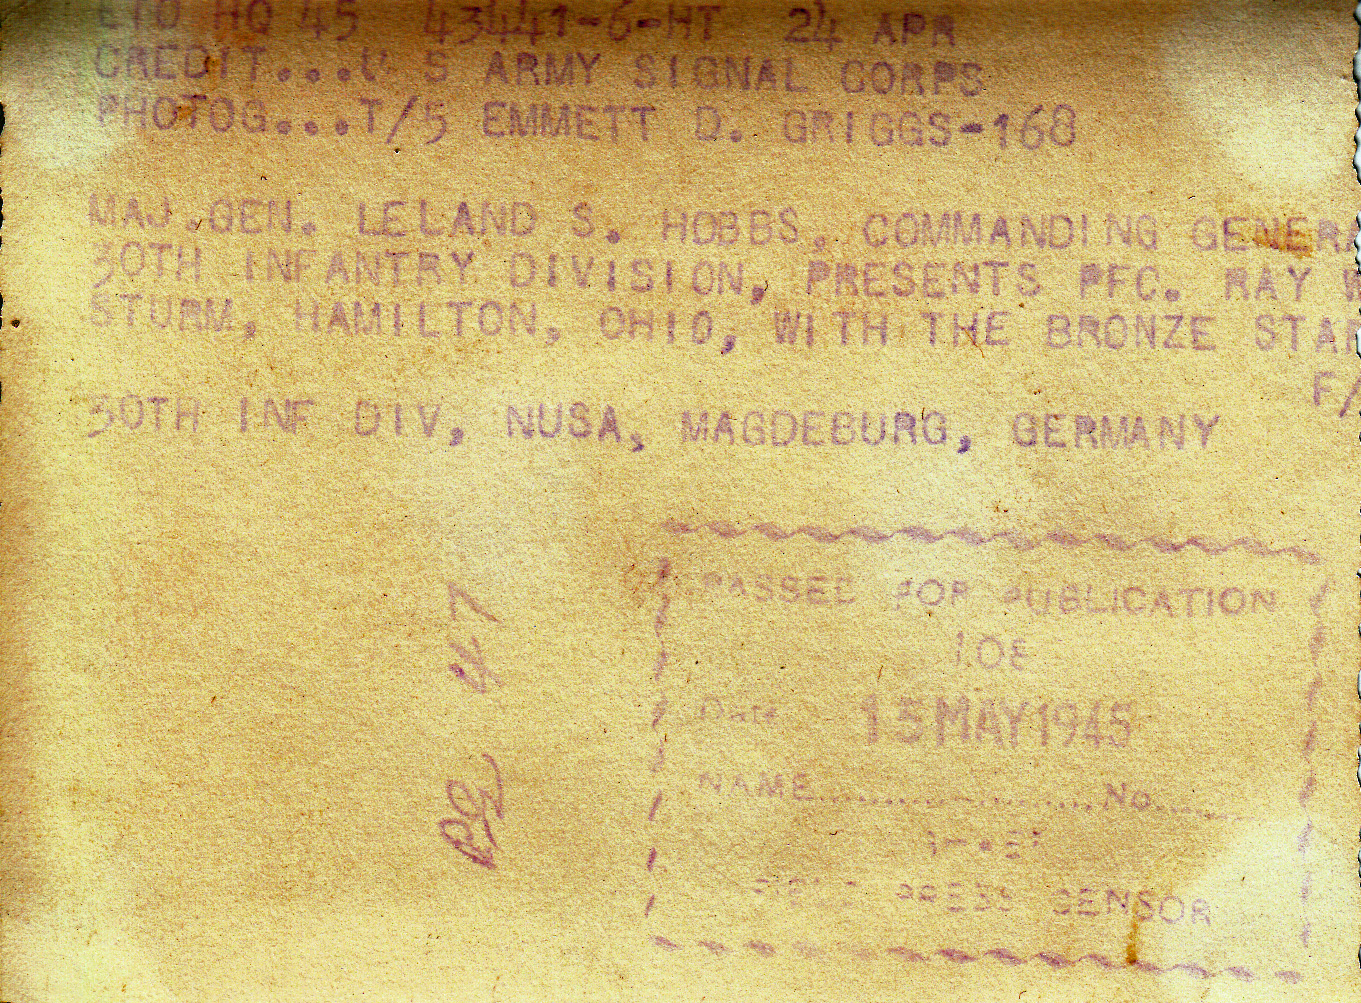 ETO HQ 45 43441-6-HT 24 APR
CREDIT...U S ARMY SIGNAL CORPS
PHOTOG...T/5 EMMETT D. GRIGGS-168
MAJ.GEN. LELAND S. HOBBS. COMMANDING GENERA
30TH INFANTRY DIVISION, PRESENTS PFC. RAY W
STURM, HAMILTON, OHIO, WITH THE BRONZE STAR
F/
30TH INF DIV, NUSA, MAGDEBURG, GERMANY
47
PASSED FOR PUBLICATION
108
Date 13 MAY 1945
NAME.....................No....
PRESS CENSOR